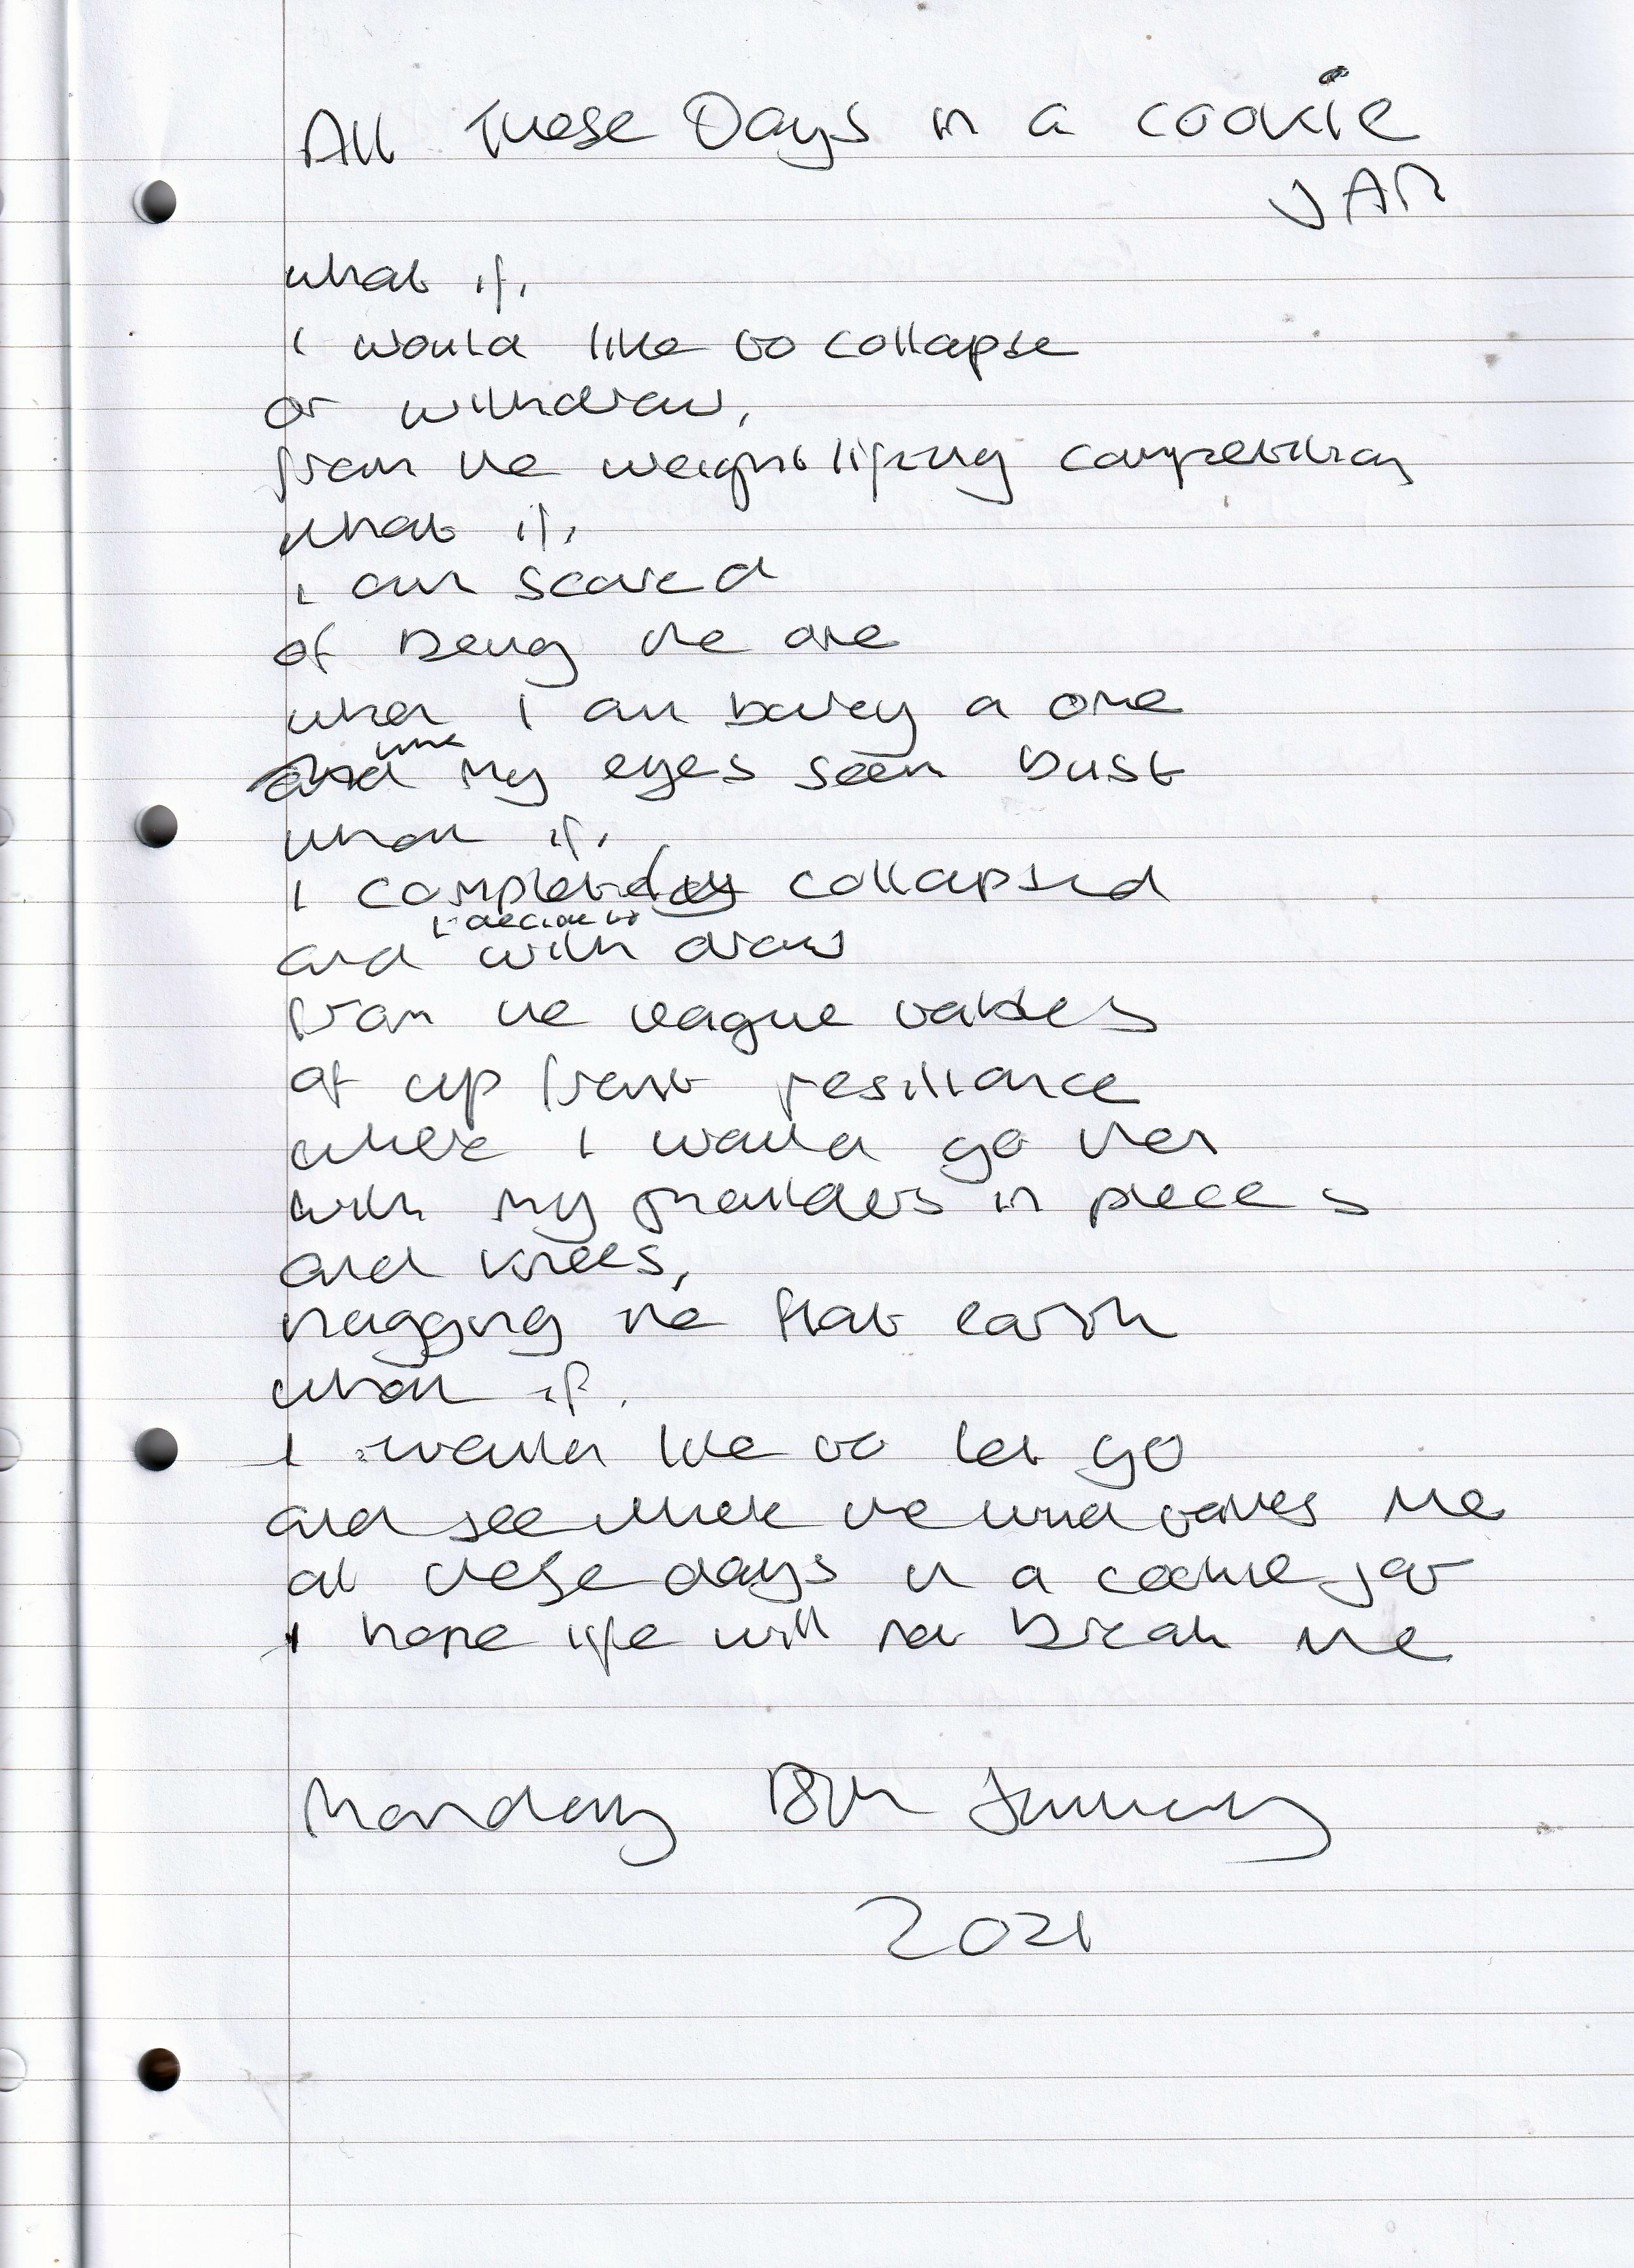 All These Days in a cookie
JAR
what if,
I would like to collapse
or withdraw,
from the weight lifting competition
what if,
I am scared
of being the one
when I am barely a one
my eyes seem dust
what if,
I completely collapsed
and I decide to with draw
from the league tables
of up front resiliance
where I would go then
with my shoulders in pieces
and knees,
hugging the flat earth
what if,
I would like to let go
and see where the wind takes me
all these days in a cookie jar
I hope life will not break me
Monday 18th January
2021